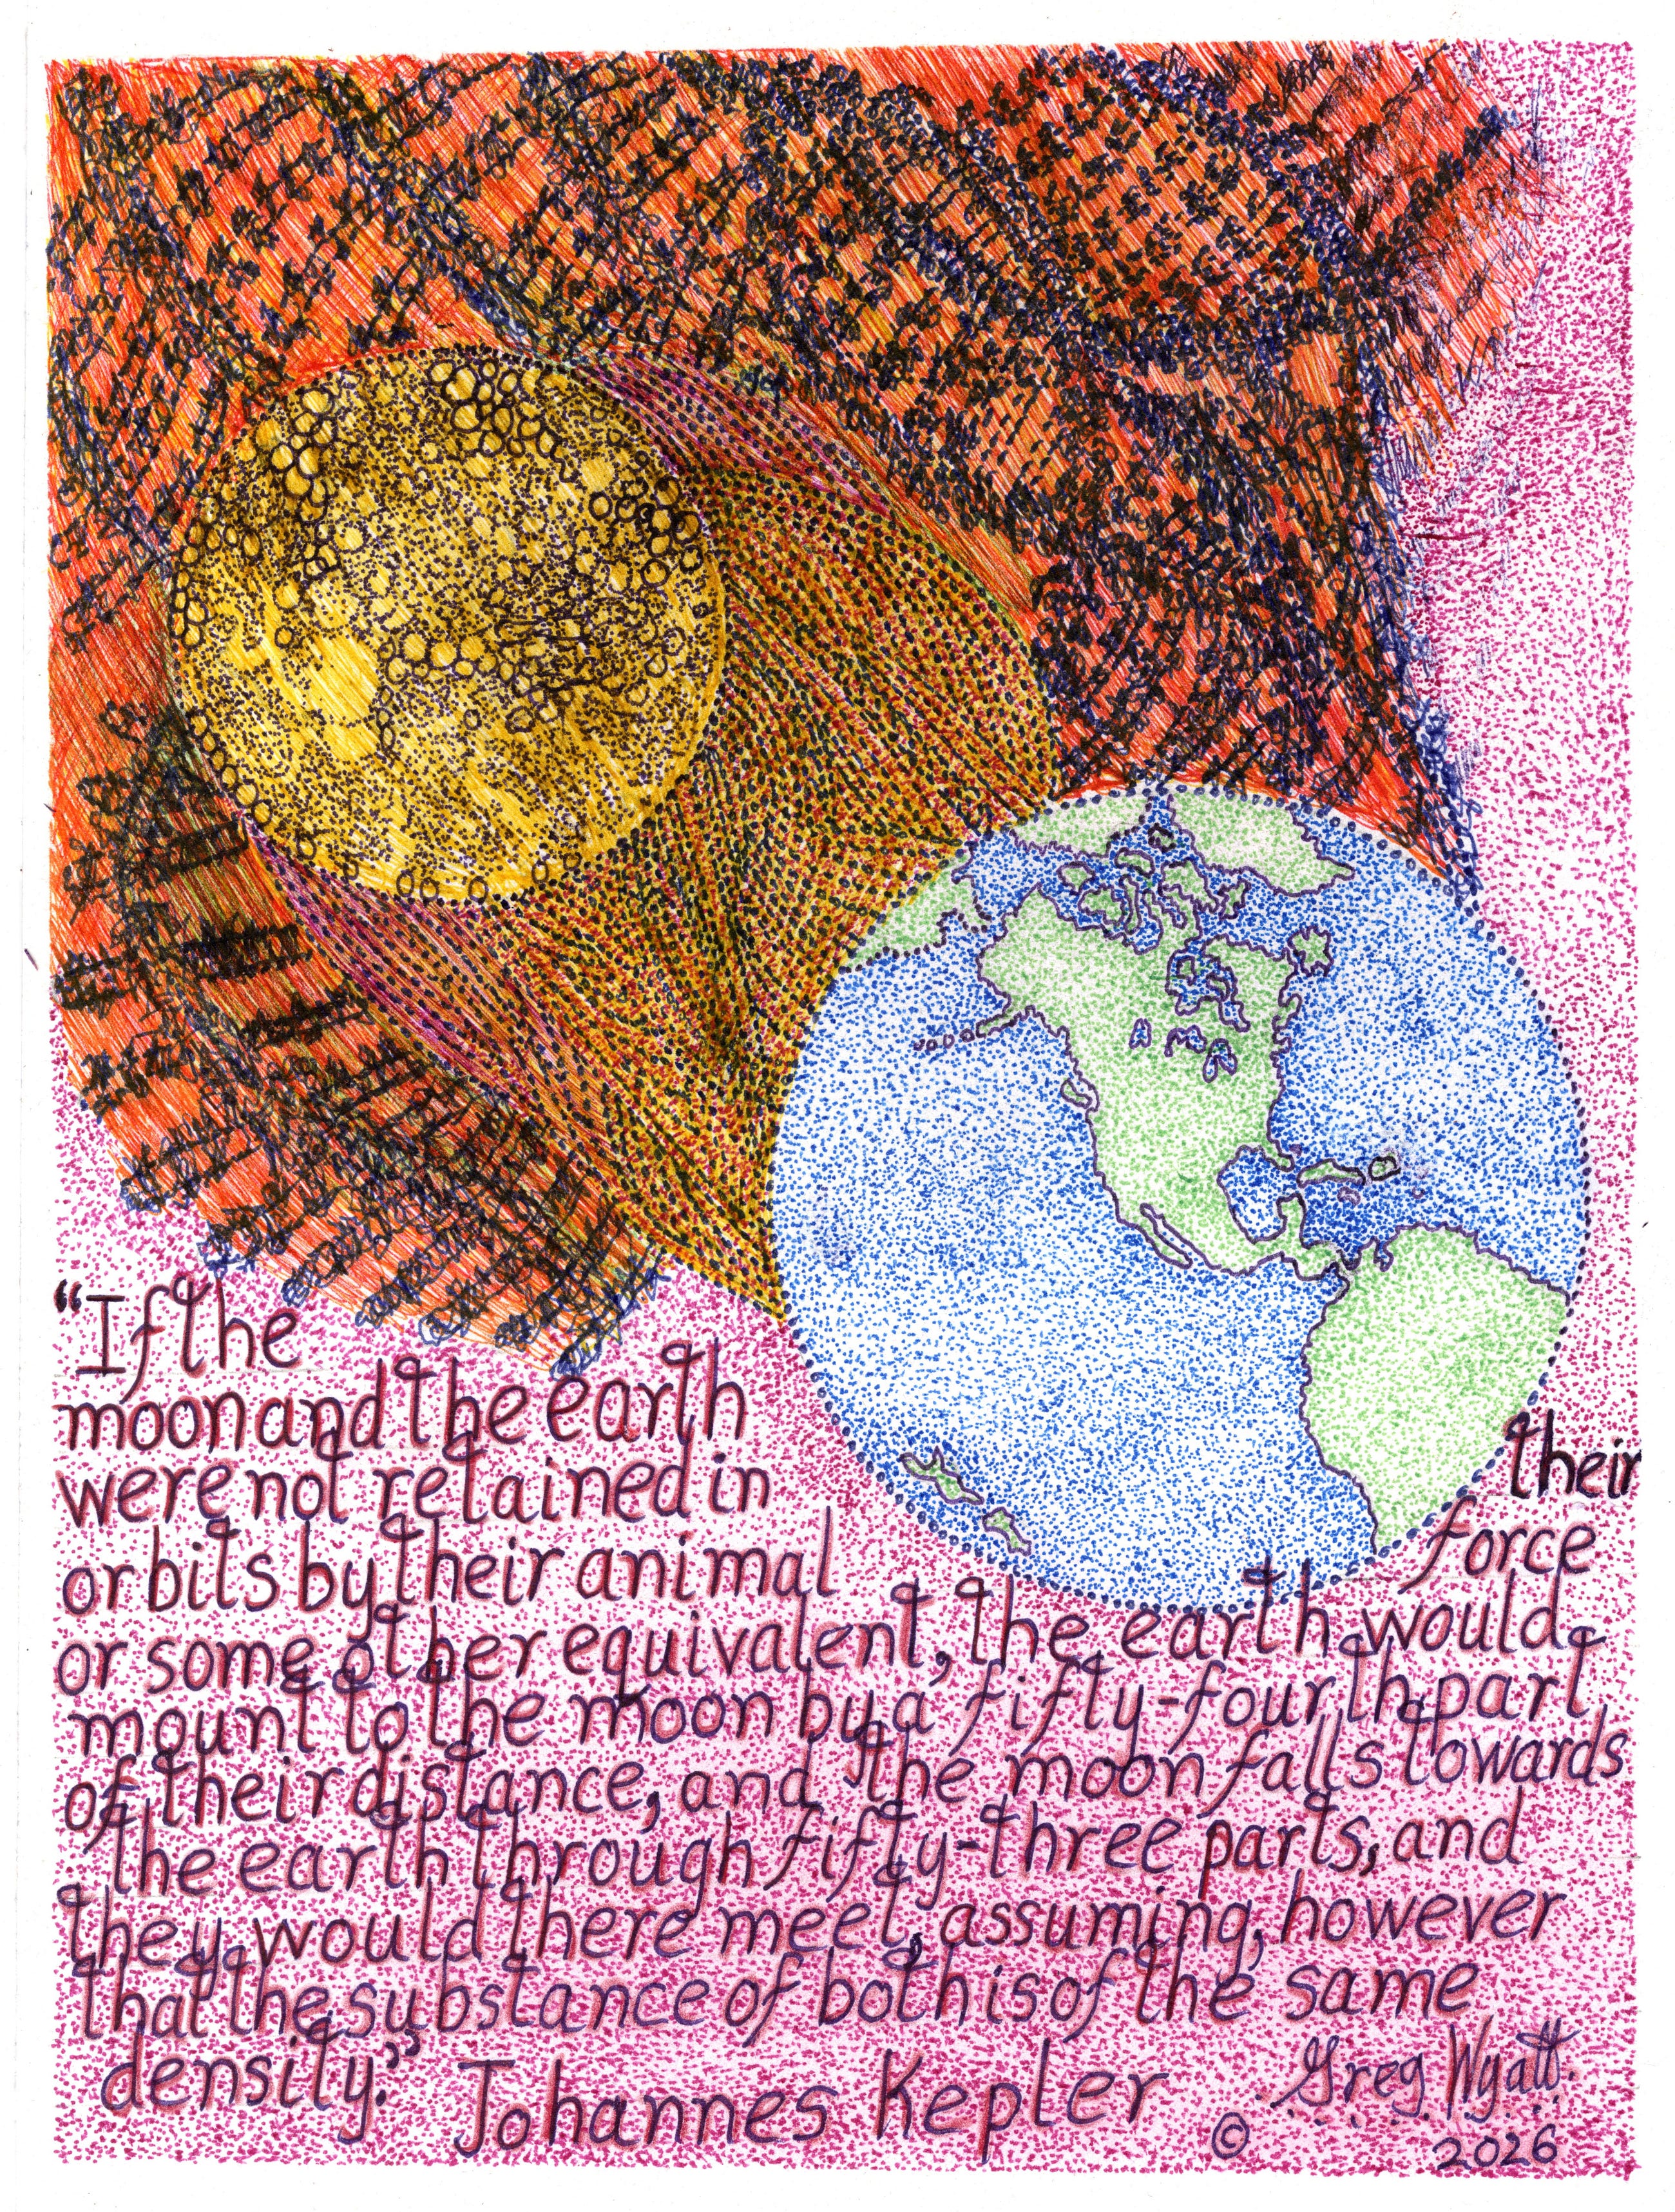 “If the
moon and the earth
were not retained in their
orbits by their animal force
or some other equivalent, the earth would
mount to the moon by a fifty-fourth part
of their distance, and the moon falls towards
the earth through fifty-three parts, and
they would there meet, assuming, however
that the substance of both is of the same
density.” Johannes Kepler
Greg Wyatt.
© 2026